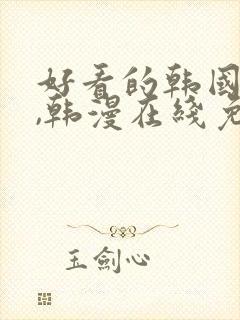 好看的韩国
,韩漫在线免
玉劍心